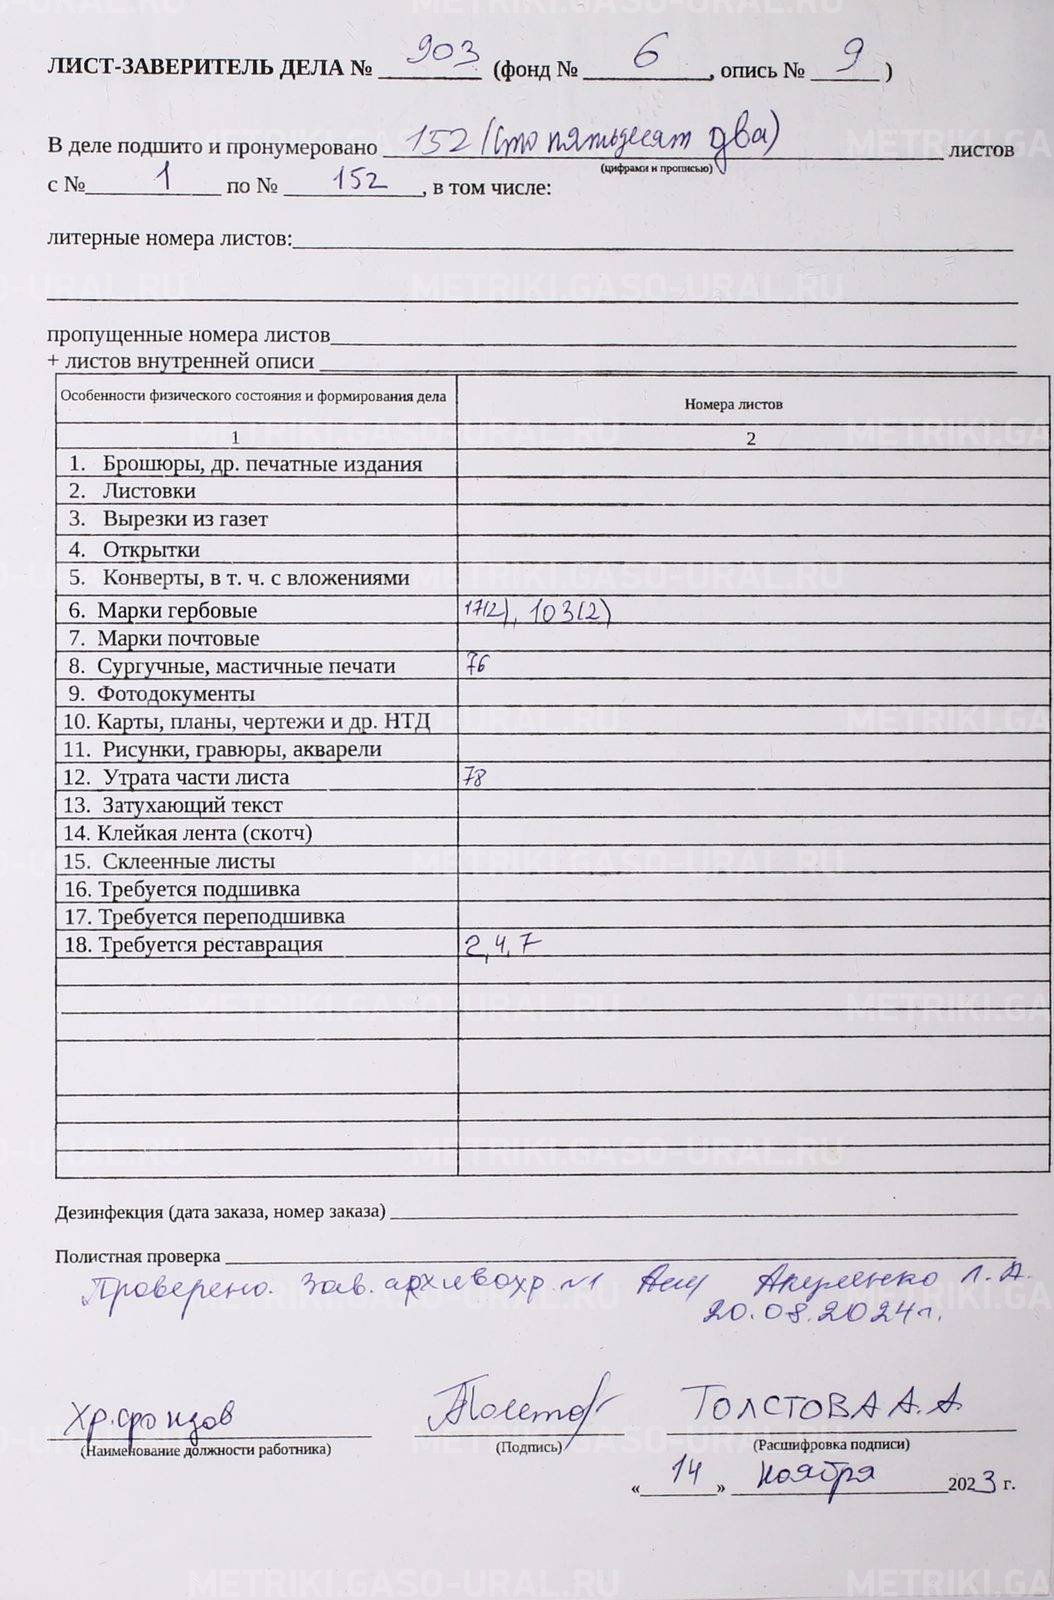 ЛИСТ-ЗАВЕРИТЕЛЬ ДЕЛА № 903 (фонд № 6, опись № 9)
В деле подшито и пронумеровано 152 (сто пятьдесят два) листов
(цифрами и прописью)
с № 1 по № 152, в том числе:
литерные номера листов:
пропущенные номера листов
+ листов внутренней описи
Особенности физического состояния и формирования дела Номера листов
1 2
1. Брошюры, др. печатные издания
2. Листовки
3. Вырезки из газет
4. Открытки
5. Конверты, в т. ч. с вложениями
6. Марки гербовые 17(2), 103(2)
7. Марки почтовые
8. Сургучные, мастичные печати 76
9. Фотодокументы
10. Карты, планы, чертежи и др. НТД
11. Рисунки, гравюры, акварели
12. Утрата части листа 78
13. Затухающий текст
14. Клейкая лента (скотч)
15. Склеенные листы
16. Требуется подшивка
17. Требуется переподшивка
18. Требуется реставрация 2,4,7
Дезинфекция (дата заказа, номер заказа)
Полистная проверка
Проверено. Зав. архивохр. №1 Л.А.
20.08.2024г.
Хр.фондов ТОЛСТОВА А.А.
(Наименование должности работника) (Подпись) (Расшифровка подписи)
«14» ноября 2023 г.
METRIKI.GASO-URAL.RU